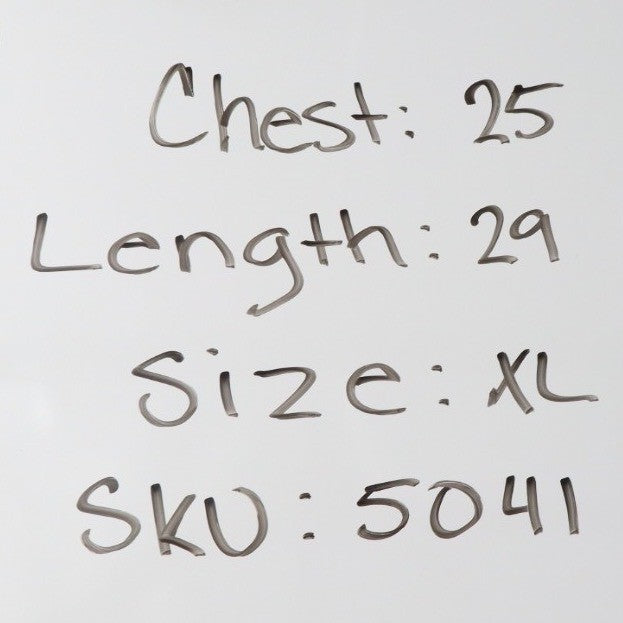 Chest: 25
Length: 29
Size: XL
SKU: 5041